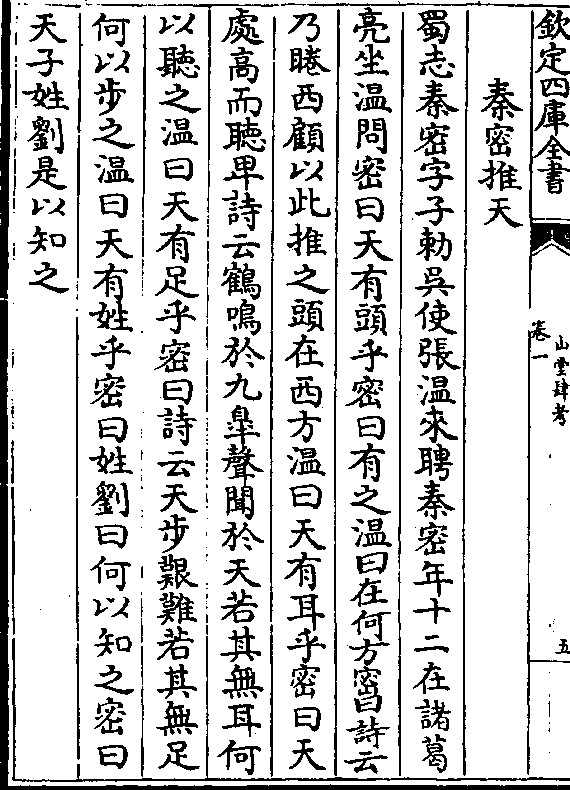 欽定四庫全書
山堂肆考
卷一
五
秦密推天
蜀志秦密字子勅吳使張溫來聘秦密年十二在諸葛
亮坐溫問密曰天有頭乎密曰有之溫曰在何方密曰詩云
乃睠西顧以此推之頭在西方溫曰天有耳乎密曰天
處高而聽卑詩云鶴鳴於九臯聲聞於天若其無耳何
以聽之溫曰天有足乎密曰詩云天步艱難若其無足
何以步之溫曰天有姓乎密曰姓劉曰何以知之密曰
天子姓劉是以知之